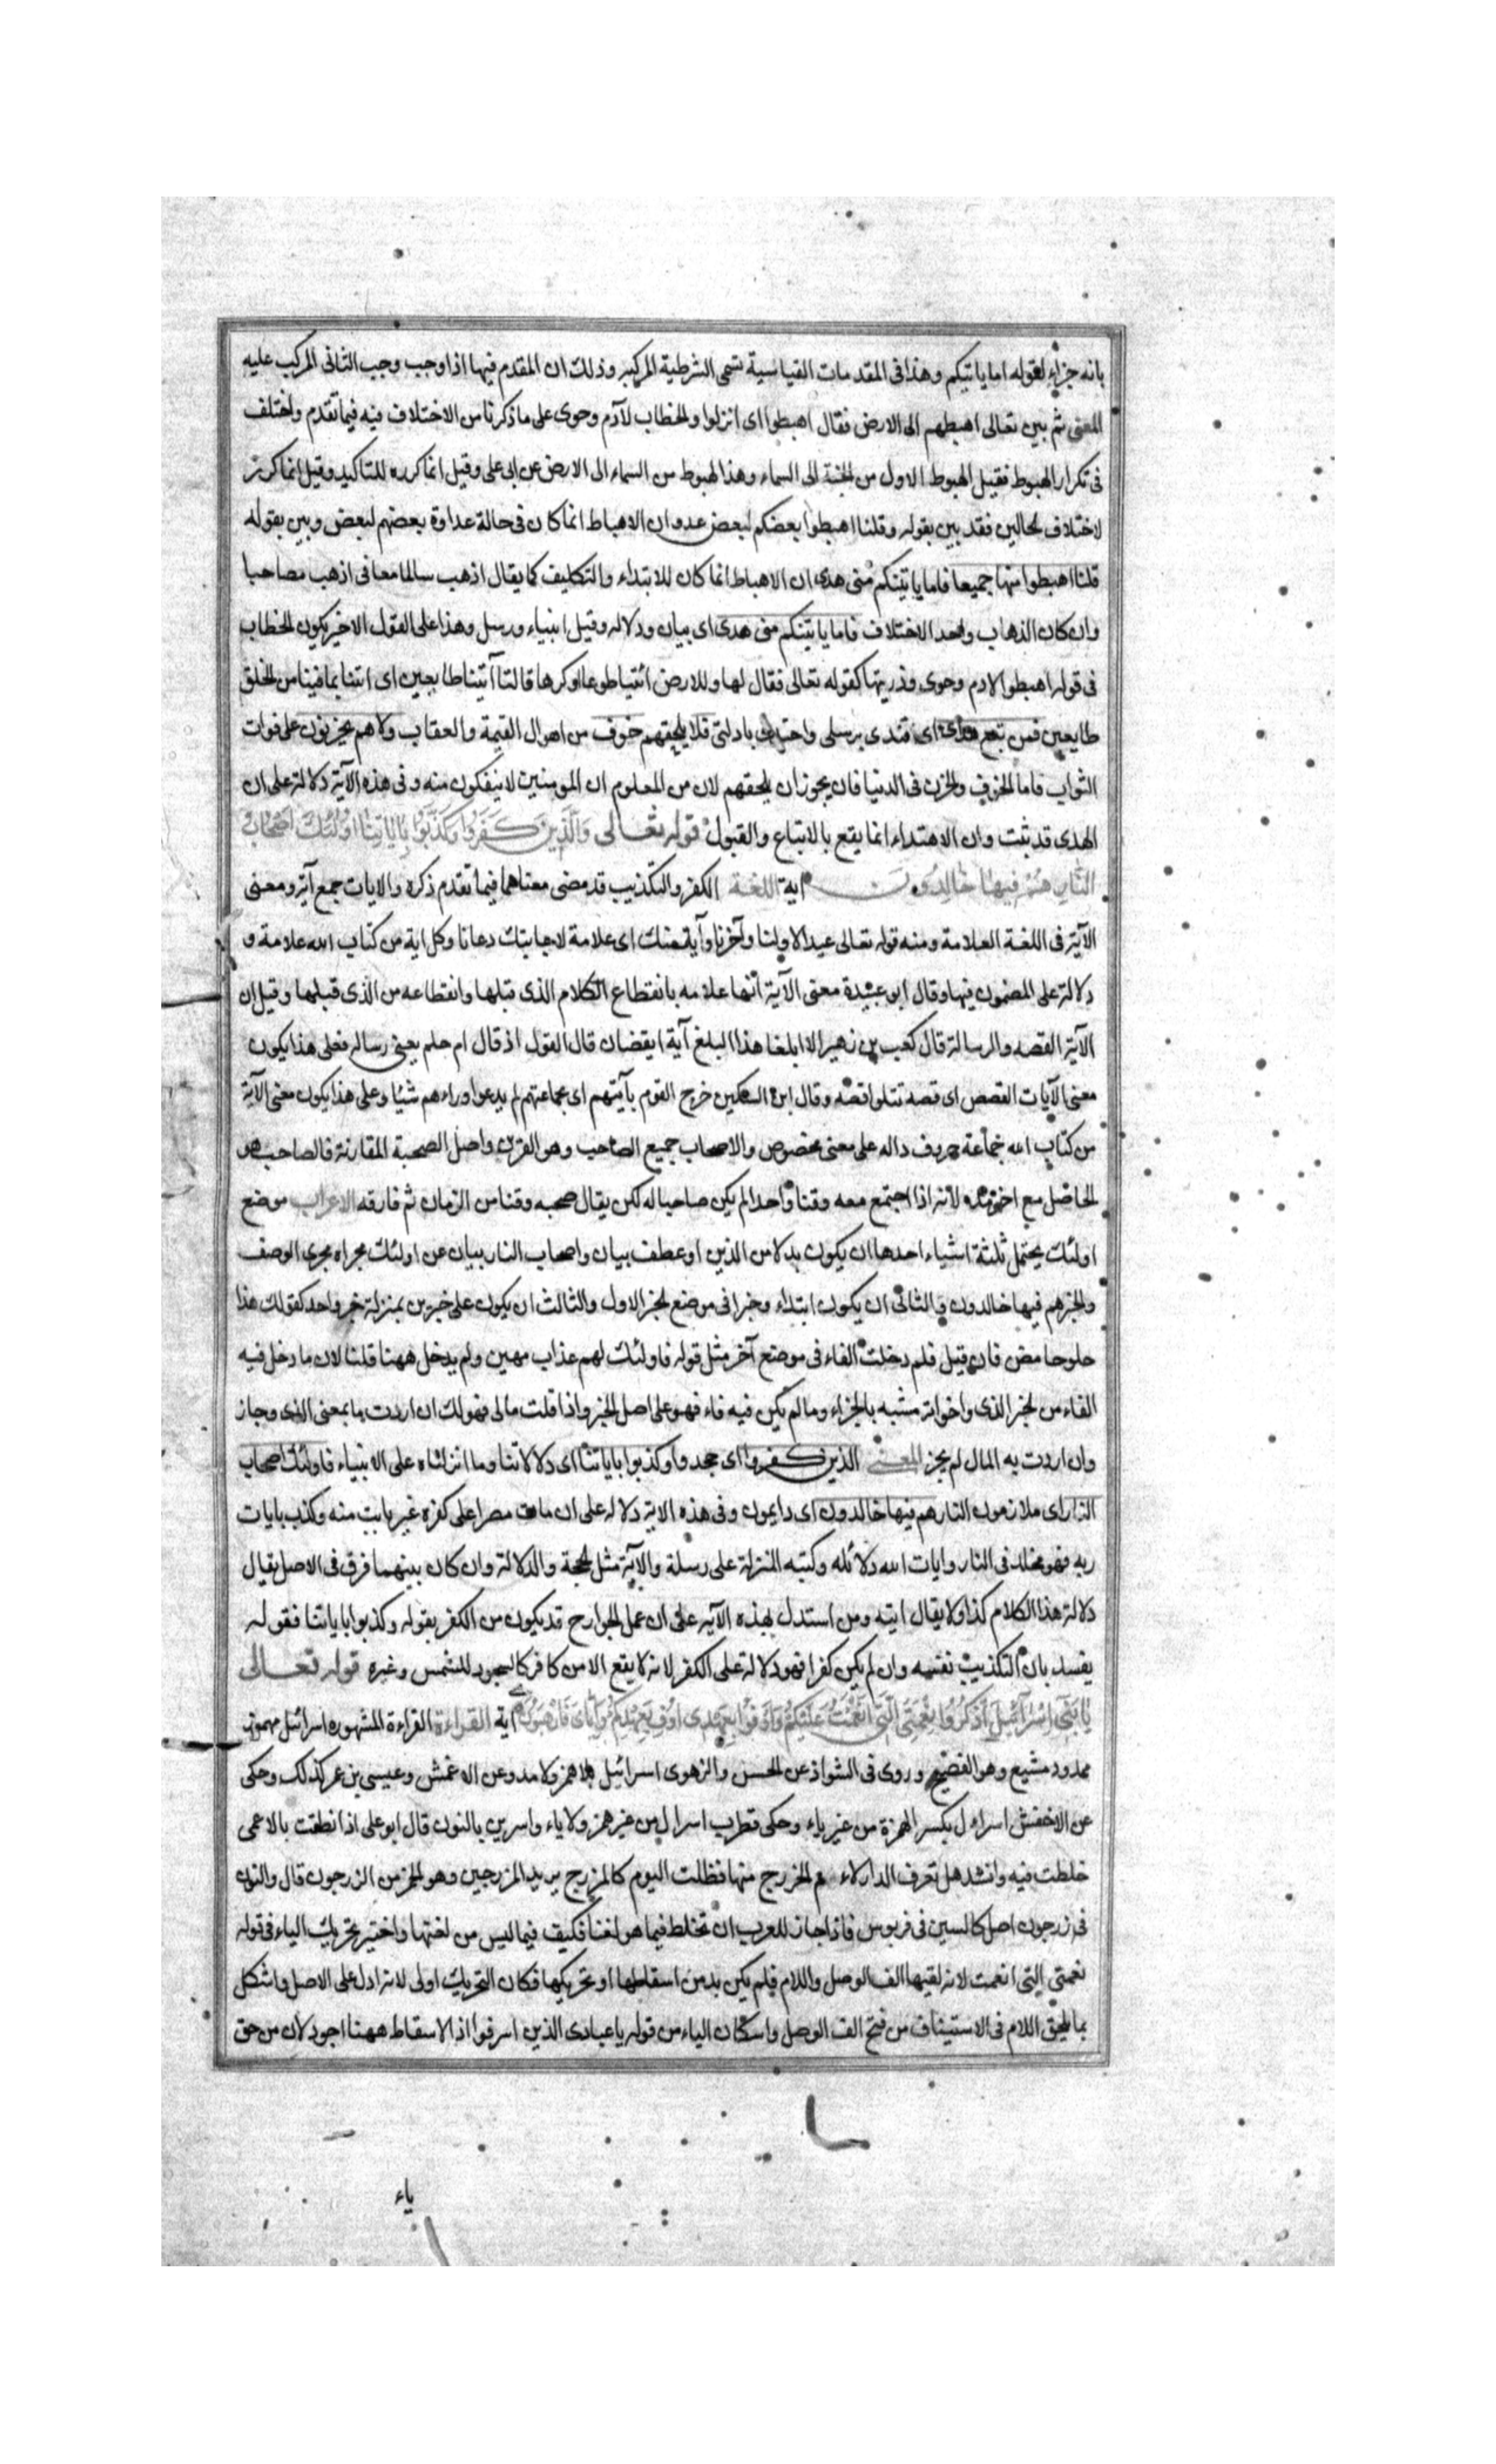 بانه جزاء لقوله اما ياتينكم وهذا فى المقدمات القياسية تسمى الشرطية المركبه وذلك ان المقدم فيها اذا وجب وجب الثانى المركب عليه
المعنى ثم بين تعالى اهبطهم الى الارض فقال اهبطوا اى انزلوا والخطاب لآدم وحوى على ما ذكرنا من الاختلاف فيه فيما تقدم واختلف
فى تكرار الهبوط فقيل الهبوط الاول من الجنة الى السماء وهذا لهبوط من السماء الى الارض عن ابى على وقيل انما كرره للتاكيد وقيل انما كرر
لاختلاف الحالين فقد بين بقوله وقلنا اهبطوا بعضكم لبعض عدو ان الاهباط انما كان فى حالة عداوة بعضهم لبعض وبين بقوله
قلنا اهبطوا منها جميعا فاما ياتينكم منى هدى ان الاهباط انما كان للابتداء والتكليف كما يقال اذهب سالما معافى اذهب مصاحبا
وان كان الذهاب واحد الاختلاف فاما ياتينكم منى هدى اى بيان ودلاله وقيل انبياء ورسل وهذا على القول الاخير يكون الخطاب
فى قوله اهبطوا لادم وحوى وذريتها كقوله تعالى فقال لها وللارض ائتيا طوعا او كرها قالتا آتينا طايعين اى اتنا بما فينا من الخلق
طايعين فمن تبع هداى اى اقتدى برسلى واحتذى بادلتى فلا يلحقهم خوف من اهوال القيمة والعقاب ولا هم يحزنون على فوات
الثواب فاما الخوف والحزن فى الدنيا فان يجوز ان يلحقهم لان من المعلوم ان المومنين لا ينفكون منه وفى هذه الآية دلالة على ان
الهدى قد ثبت وان الاهتداء انما يقع بالاتباع والقبول قوله تعالى والذين كفروا وكذبوا باياتنا اولئك اصحاب
النار هم فيها خالدون اية اللغة الكفر والتكذيب قد مضى معناهما فيما تقدم ذكره والايات جمع آية ومعنى
الآية فى اللغة العلامة ومنه قوله تعالى عيدا لاولنا وآخرنا وآية منك اى علامة لاجابتك دعانا وكل اية من كتاب الله علامة و
دلالة على المضمون فيها وقال ابو عبيدة معنى الآية انها علامه بانقطاع الكلام الذى قبلها وانقطاعه من الذى قبلها وقيل ان
الآية القصه والرسالة قال كعب بن زهير الا ابلغا هذا المبلغ آية ايقضان قال القول اذ قال ام حلم يعنى رساله فعلى هذا يكون
معنى الآيات القصص اى قصه تتلوا قصه وقال ابن السكين خرج القوم بآيتهم اى بجماعتهم لم يدعوا وراءهم شيئا وعلى هذا يكون معنى الآية
من كتاب الله جماعة حروف داله على معنى مخصوص والاصحاب جميع الصاحب وهو القرين واصل الصحبة المقارنة فالصاحب هو
الحاضل مع اخوته لأنه اذا اجتمع معه وقتا واحدا لم يكن صاحبا له لكن يقال صحبه وقتا من الزمان ثم فارقه الاعراب موضع
اولئك يحتمل ثلثة اشياء احدها ان يكون بدلا من الذين او عطف بيان واصحاب النار بيان عن اولئك مجراه مجرى الوصف
والخبر هم فيها خالدون والثانى ان يكون ابتداء وخبرا فى موضع الخبر الاول والثالث ان يكون على خبرين بمنزلة خبر واحد كقولك هذا
حلو حامض فان قيل فلم دخلت الفاء فى موضع آخر مثل قوله فاولئك لهم عذاب مهين ولم يدخل ههنا قلنا لان ما دخل فيه
الفاء من خبر الذى واخواته مشبه بالجزاء وما لم يكن فيه فاء فهو على اصل الخبر واذا قلت مالى فهو لك ان اردت ما بمعنى الذى وجاز
وان اردت به المال لم يجز المعنى الذين كفروا اى جحدوا وكذبوا باياتنا اى دلالاتنا وما انزلناه على الانبياء فاولئك اصحاب
النار اى ملازمون النار هم فيها خالدون اى دايمون وفى هذه الاية دلاله على ان مات مصرا على كفره غير تابت منه وكذب بايات
ربه فهو مخلد فى النار وايات الله دلائله وكتبه المنزلة على رسلة والآية مثل الحجة والدلالة وان كان بينهما فرق فى الاصل يقال
دلالة هذا الكلام كذا ولا يقال ايته ومن استدل بهذه الآيه على ان عمل الجوارح قد يكون من الكفر بقوله وكذبوا باياتنا فقوله
يفسد بان التكذيب نفسه وان لم يكن كفرا فهو دلالة على الكفر لانه لا يقع الا من كافر كالسجود للشمس وغيره قوله تعالى
يا بنى اسرائيل اذكروا نعمتى التى انعمت عليكم واوفوا بعهدى اوف بعهدكم واياى فارهبون اية القراءة القراءة المشهوره اسرائيل مهموز
ممدود مشبع وهو الفصيح وروى فى الشواذ عن الحسن والزهوى اسرائيل بلا همز ولا مد وعن الاعمش وعيسى بن عمر كذلك وحكى
عن الاخفش اسراءل بكسر الهمزة من غير ياء وحكى قطرب اسرال من غير همز ولا ياء واسرين بالنون قال ابو على اذا نطقت بالاعجمى
خلطت فيه وانشد هل تعرف الدار لام الخزرج منها فظلت اليوم كالمزرج يريد المزرجين وهو الخمر من الزرجون قال والنون
فى زرجون اصل كالسين فى قربوس فاذا جاز للعرب ان تخلط فيما هو لغتنا فكيف فيما ليس من لغتها واختير تحريك الياء فى قوله
نعمتى التى انعمت لانه لقيها الف الوصل واللام فلم يكن بد من اسقاطها او تحريكها فكان التحريك اولى لانه ادل على الاصل واشكل
بما يلحق اللام فى الاستيناف من فتح الف الوصل واسكان الياء من قوله يا عبادى الذين اسرفوا اذ الاسقاط ههنا اجود لان من حق
ياء